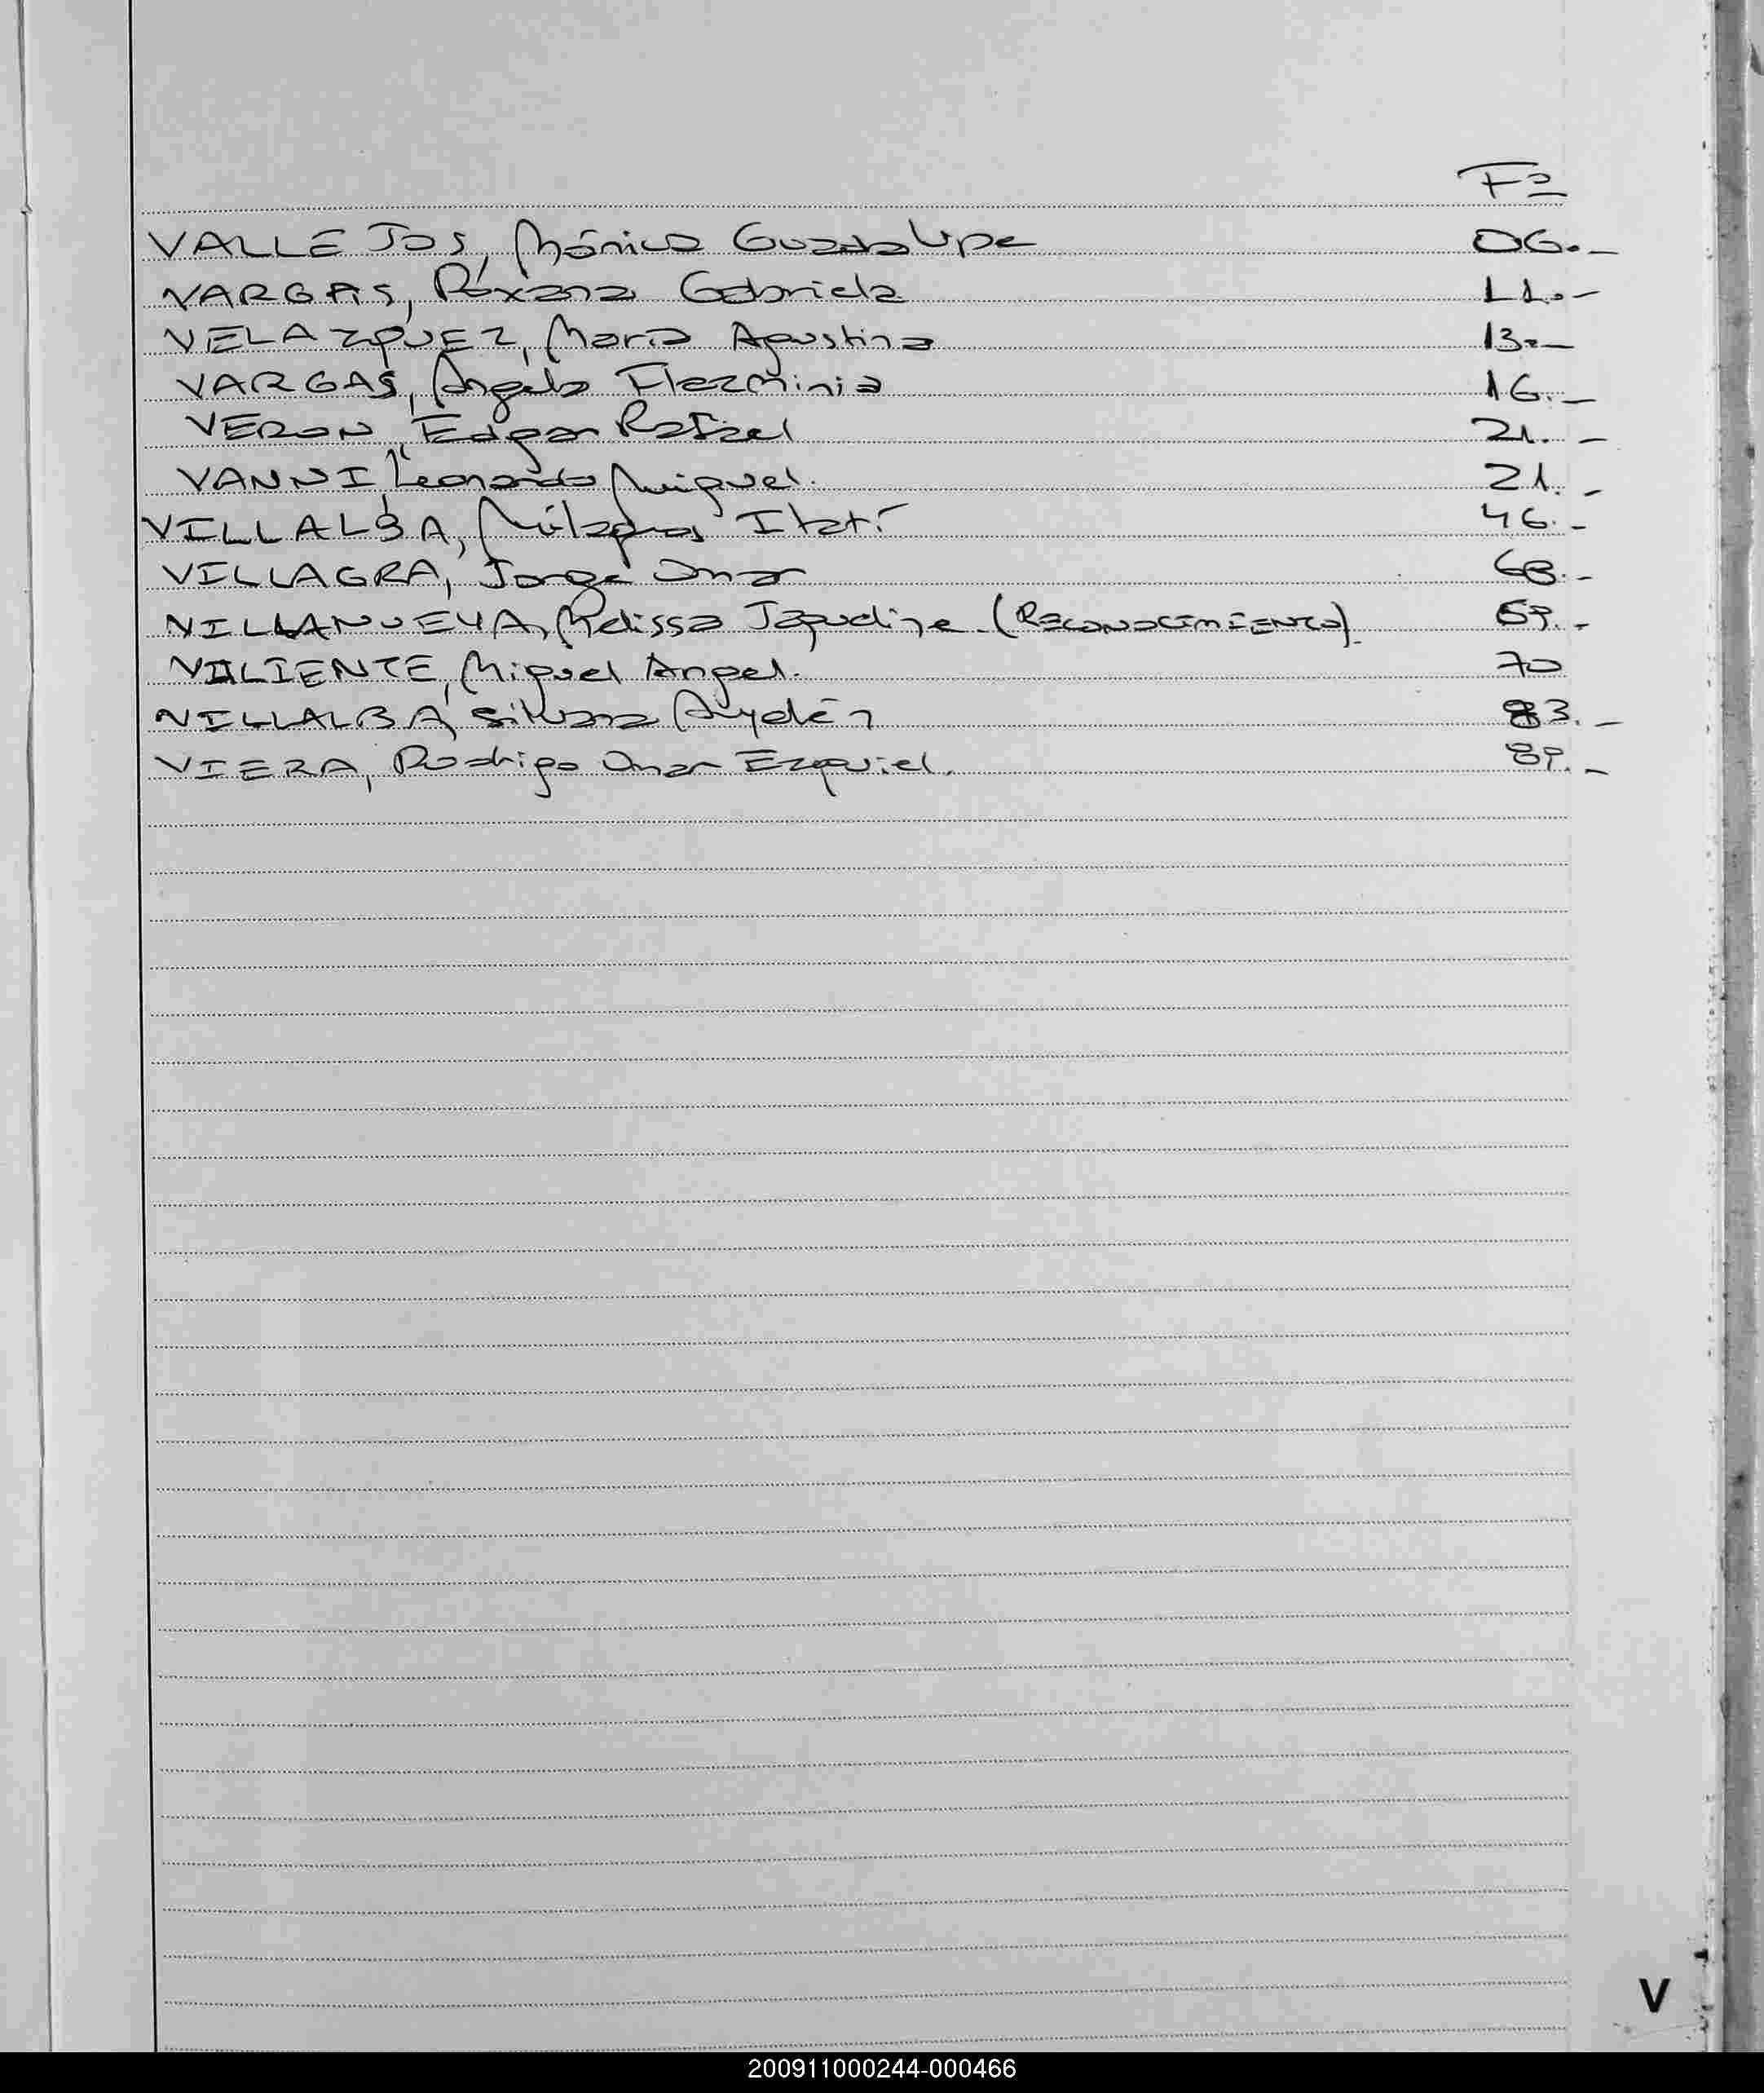 Fº
VALLEJOS, Mónica Guadalupe 06.-
VARGAS, Roxana Gabriela 11.-
VELAZQUEZ, María Agustina 13.-
VARGAS, Angela Flerminia 16.-
VERON, Edgar Rafael 21.-
VANNI, Leonardo Miguel. 21.-
VILLALBA, Milagros Itatí 46.-
VILLAGRA, Jorge Omar 68.-
VILLANUEVA, Melissa Jaqueline. (RECONOCIMIENTO) 69.-
VALIENTE, Miguel Angel. 70
VILLALBA, Silvana Aydén 83.-
VIERA, Rodrigo Omar Ezequiel. 89.-
V
200911000244-000466